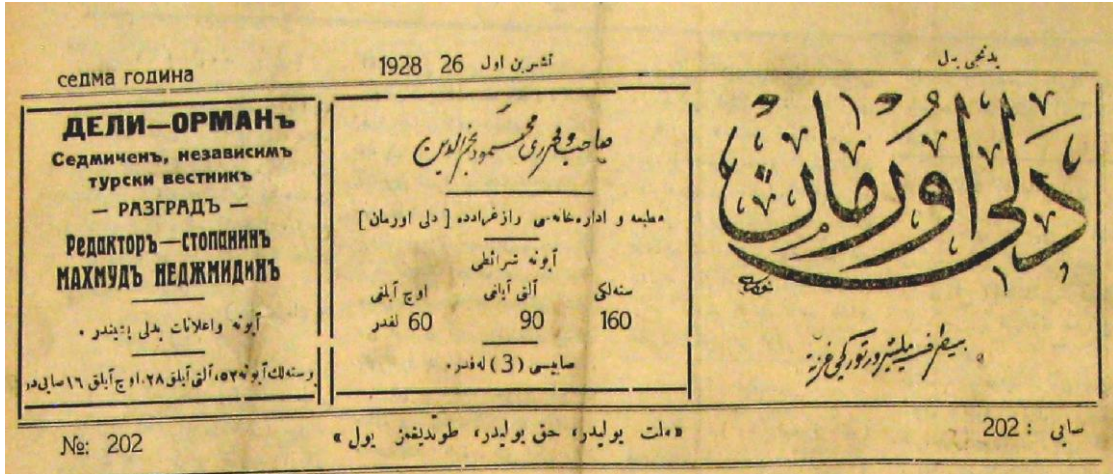 седма година
1928 26 تشرین اول
یدنجی ییل
ДЕЛИ—ОРМАНЪ
Седмиченъ, независимъ
турски вестникъ
— РАЗГРАДЪ —
Редакторъ—стопанинъ
МАХМУДЪ НЕДЖМИДИНЪ
آبونه واعلانات بدلی پشیندر .
برسنه لك آبونه ٥٢، آلتی آیلق ٢٨، اوچ آیلق ١٦ صاییدر
صاحب و محرری محمود نجم الدین
مطبعه و اداره خانه سی رازغرادده [ دلی اورمان ]
آبونه شرائطی
سنه لکی آلتی آیلغی اوچ آیلغی
160 90 60 لفدر
صاییسی (3) له فدر.
دلی اورمان
بیطرف ملیتپرور تورکجه غزته
№: 202
«ملت یولیدر، حق یولیدر، طوتدیغمز یول»
صایی : 202